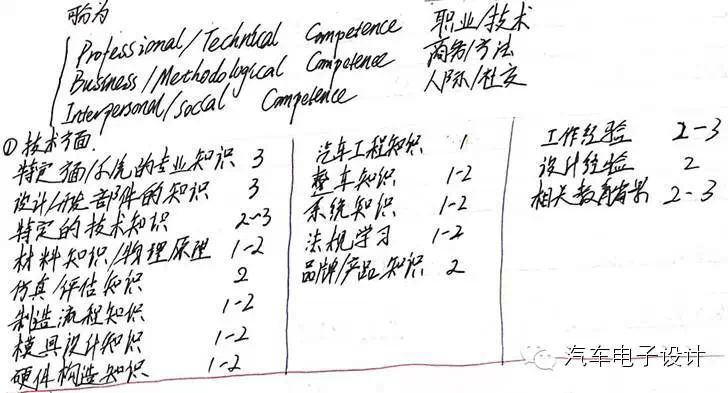 可分为
Professional/Technical Competence 职业/技术
Business/Methodological Competence 商务/方法
Interpersonal/social Competence 人际/社交
① 技术方面.
特定方面/系统的专业知识 3
设计/开发部件的知识 3
特定的技术知识 2-3
材料知识/物理原理 1-2
仿真/评估知识 2
制造流程知识 1-2
模具设计知识 1-2
硬件构造知识 1-2
汽车工程知识 1
整车知识 1-2
系统知识 1-2
法规学习 1-2
品牌/产品知识 2
工作经验 2-3
设计经验 2
相关教育背景 2-3
汽车电子设计